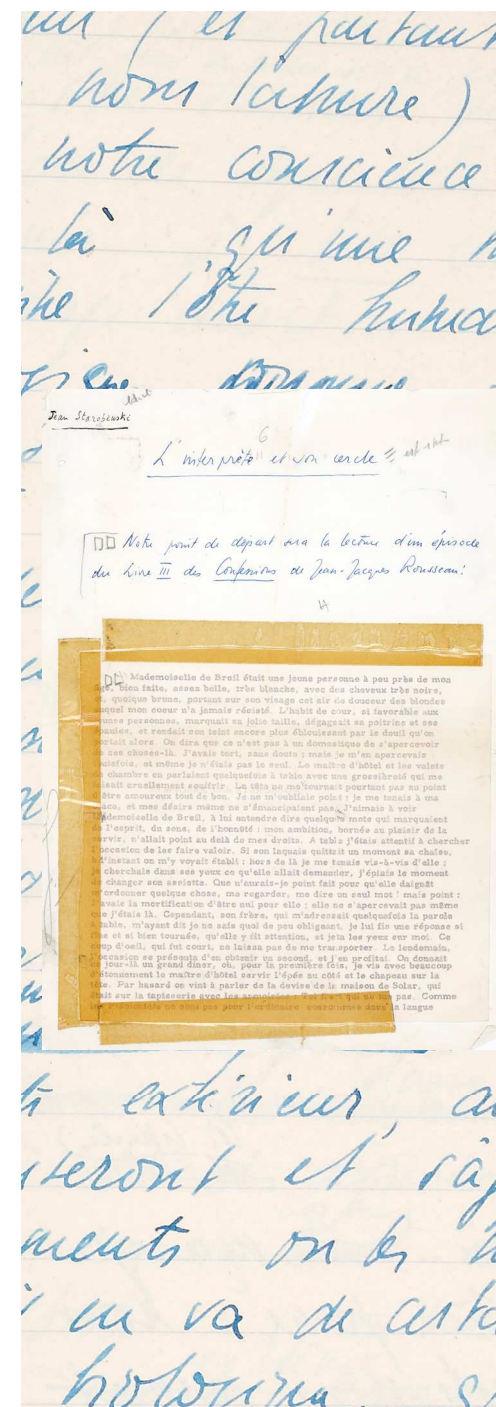 (et partant
nous
notre conscience
là qu'une
l'être
Jean Starobinski
6
L'interprète et son cercle
Notre point de départ sera la lecture d'un épisode
du Livre III des Confessions de Jean-Jacques Rousseau:
Mademoiselle de Breil était une jeune personne à peu près de mon
âge, bien faite, assez belle, très blanche, avec des cheveux très noirs,
et, quoique brune, portant sur son visage cet air de douceur des blondes
auquel mon coeur n'a jamais résisté. L'habit de cour, si favorable aux
jeunes personnes, marquait sa jolie taille, dégageait sa poitrine et ses
épaules, et rendait son teint encore plus éblouissant par le deuil qu'on
portait alors. On dira que ce n'est pas à un domestique de s'apercevoir
de ces choses-là. J'avais tort, sans doute ; mais je m'en apercevais
toutefois, et même je n'étais pas le seul. Le maître d'hôtel et les valets
de chambre en parlaient quelquefois à table avec une grossièreté qui me
faisait cruellement souffrir. La tête ne me tournait pourtant pas au point
d'être amoureux tout de bon. Je ne m'oubliais point ; je me tenais à ma
place, et mes désirs même ne s'émancipaient pas. J'aimais à voir
Mademoiselle de Breil, à lui entendre dire quelques mots qui marquaient
de l'esprit, du sens, de l'honnêté : mon ambition, bornée au plaisir de la
servir, n'allait point au delà de mes droits. A table j'étais attentif à chercher
l'occasion de les faire valoir. Si son laquais quittait un moment sa chaise,
à l'instant on m'y voyait établi : hors de là je me tenais vis-à-vis d'elle ;
je cherchais dans ses yeux ce qu'elle allait demander, j'épiais le moment
de changer son assiette. Que n'aurais-je point fait pour qu'elle daignât
m'ordonner quelque chose, me regarder, me dire un seul mot ! mais point :
j'avais la mortification d'être nul pour elle ; elle ne s'apercevait pas même
que j'étais là. Cependant, son frère, qui m'adressait quelquefois la parole
à table, m'ayant dit je ne sais quoi de peu obligeant, je lui fis une réponse si
fine et si bien tournée, qu'elle y fit attention, et jeta les yeux sur moi. Ce
coup d'oeil, qui fut court, ne laissa pas de me transporter. Le lendemain,
l'occasion se présenta d'en obtenir un second, et j'en profitai. On donnait
ce jour-là un grand dîner, où, pour la première fois, je vis avec beaucoup
d'étonnement le maître d'hôtel servir l'épée au côté et le chapeau sur la
tête. Par hasard on vint à parler de la devise de la maison de Solar, qui
était sur la tapisserie avec les armoiries : Tel fiert qui ne tue pas. Comme
les Piémontais ne sont pas pour l'ordinaire consommés dans la langue
extérieur,
et
on les
en va de